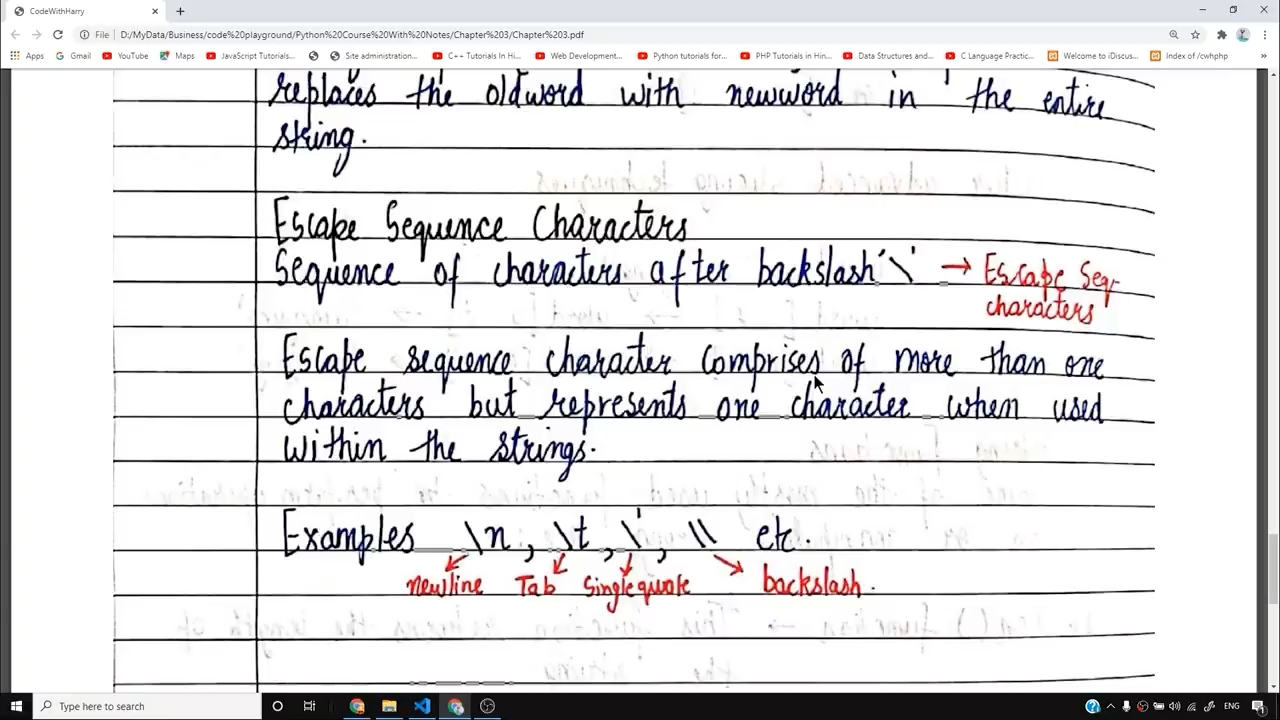 CodeWithHarry
File | D:/MyData/Business/code%20playground/Python%20Course%20With%20Notes/Chapter%203/Chapter%203.pdf
Apps Gmail YouTube Maps JavaScript Tutorials... Site administration... C++ Tutorials In Hi... Web Development... Python tutorials for... PHP Tutorials in Hin... Data Structures and... C Language Practic... Welcome to iDiscus... Index of /cwhphp
replaces the oldword with newword in the entire
string.
Escape Sequence Characters
Sequence of characters after backslash '\' → Escape Seq.
characters
Escape sequence character comprises of more than one
characters but represents one character when used
within the strings.
Examples \n, \t, \', \\ etc.
newline Tab Singlequote backslash.
Type here to search
ENG